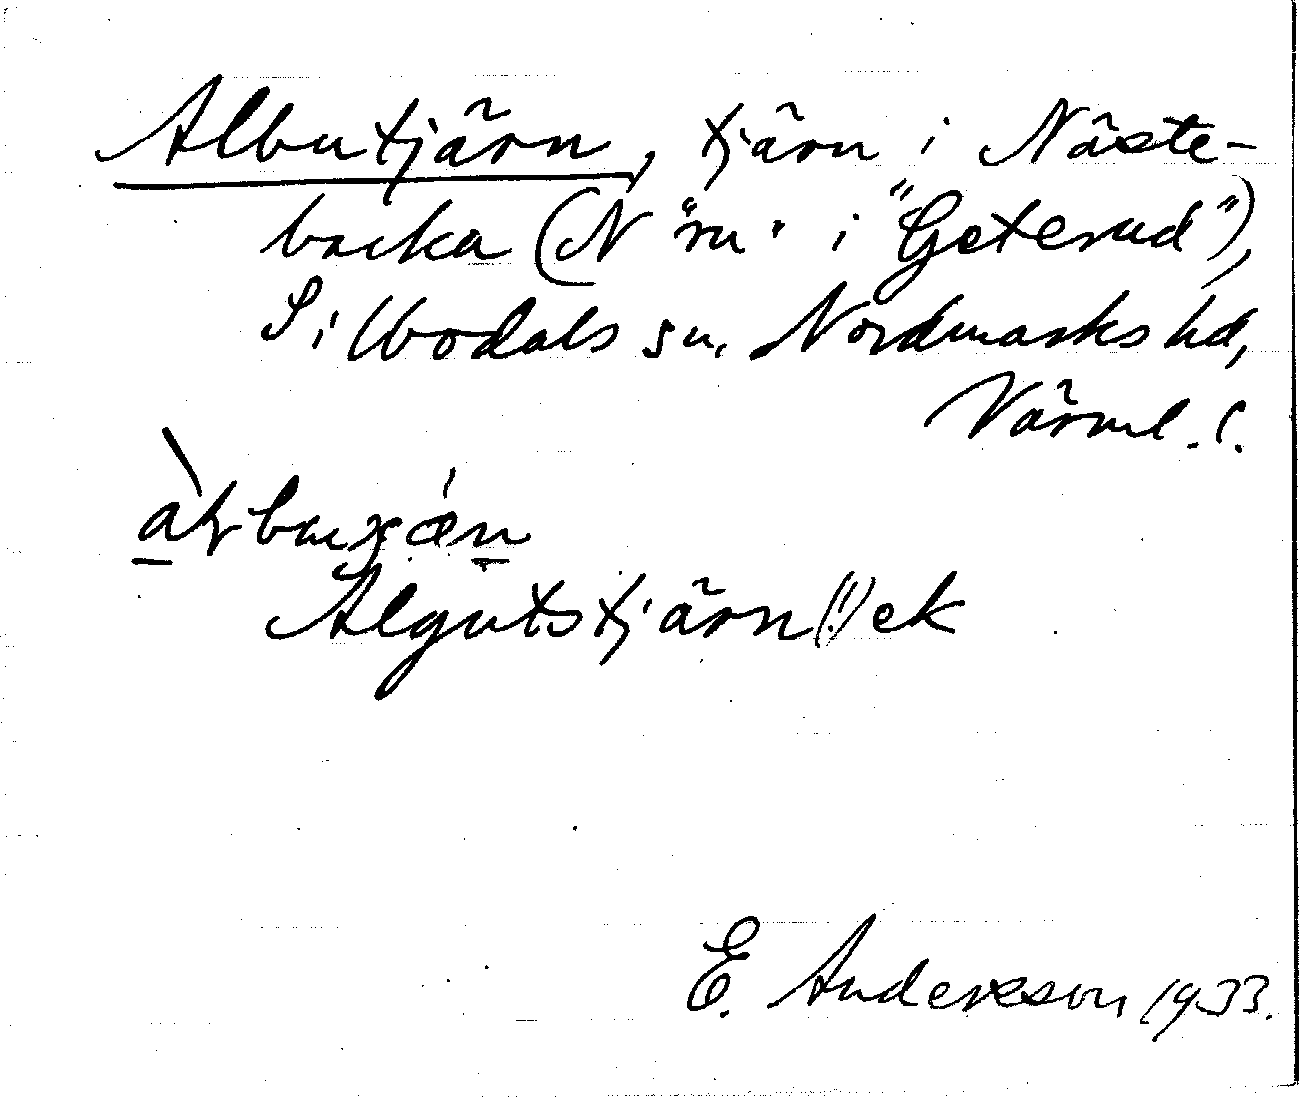 Albutjärn, tjärn i Näste-
backa (N "ru" i "Geterud"),
Silbodals sn. Nordmarks hd,
Värml. l.
Älgutstjärn(!) ek
E. Andersson 1933.